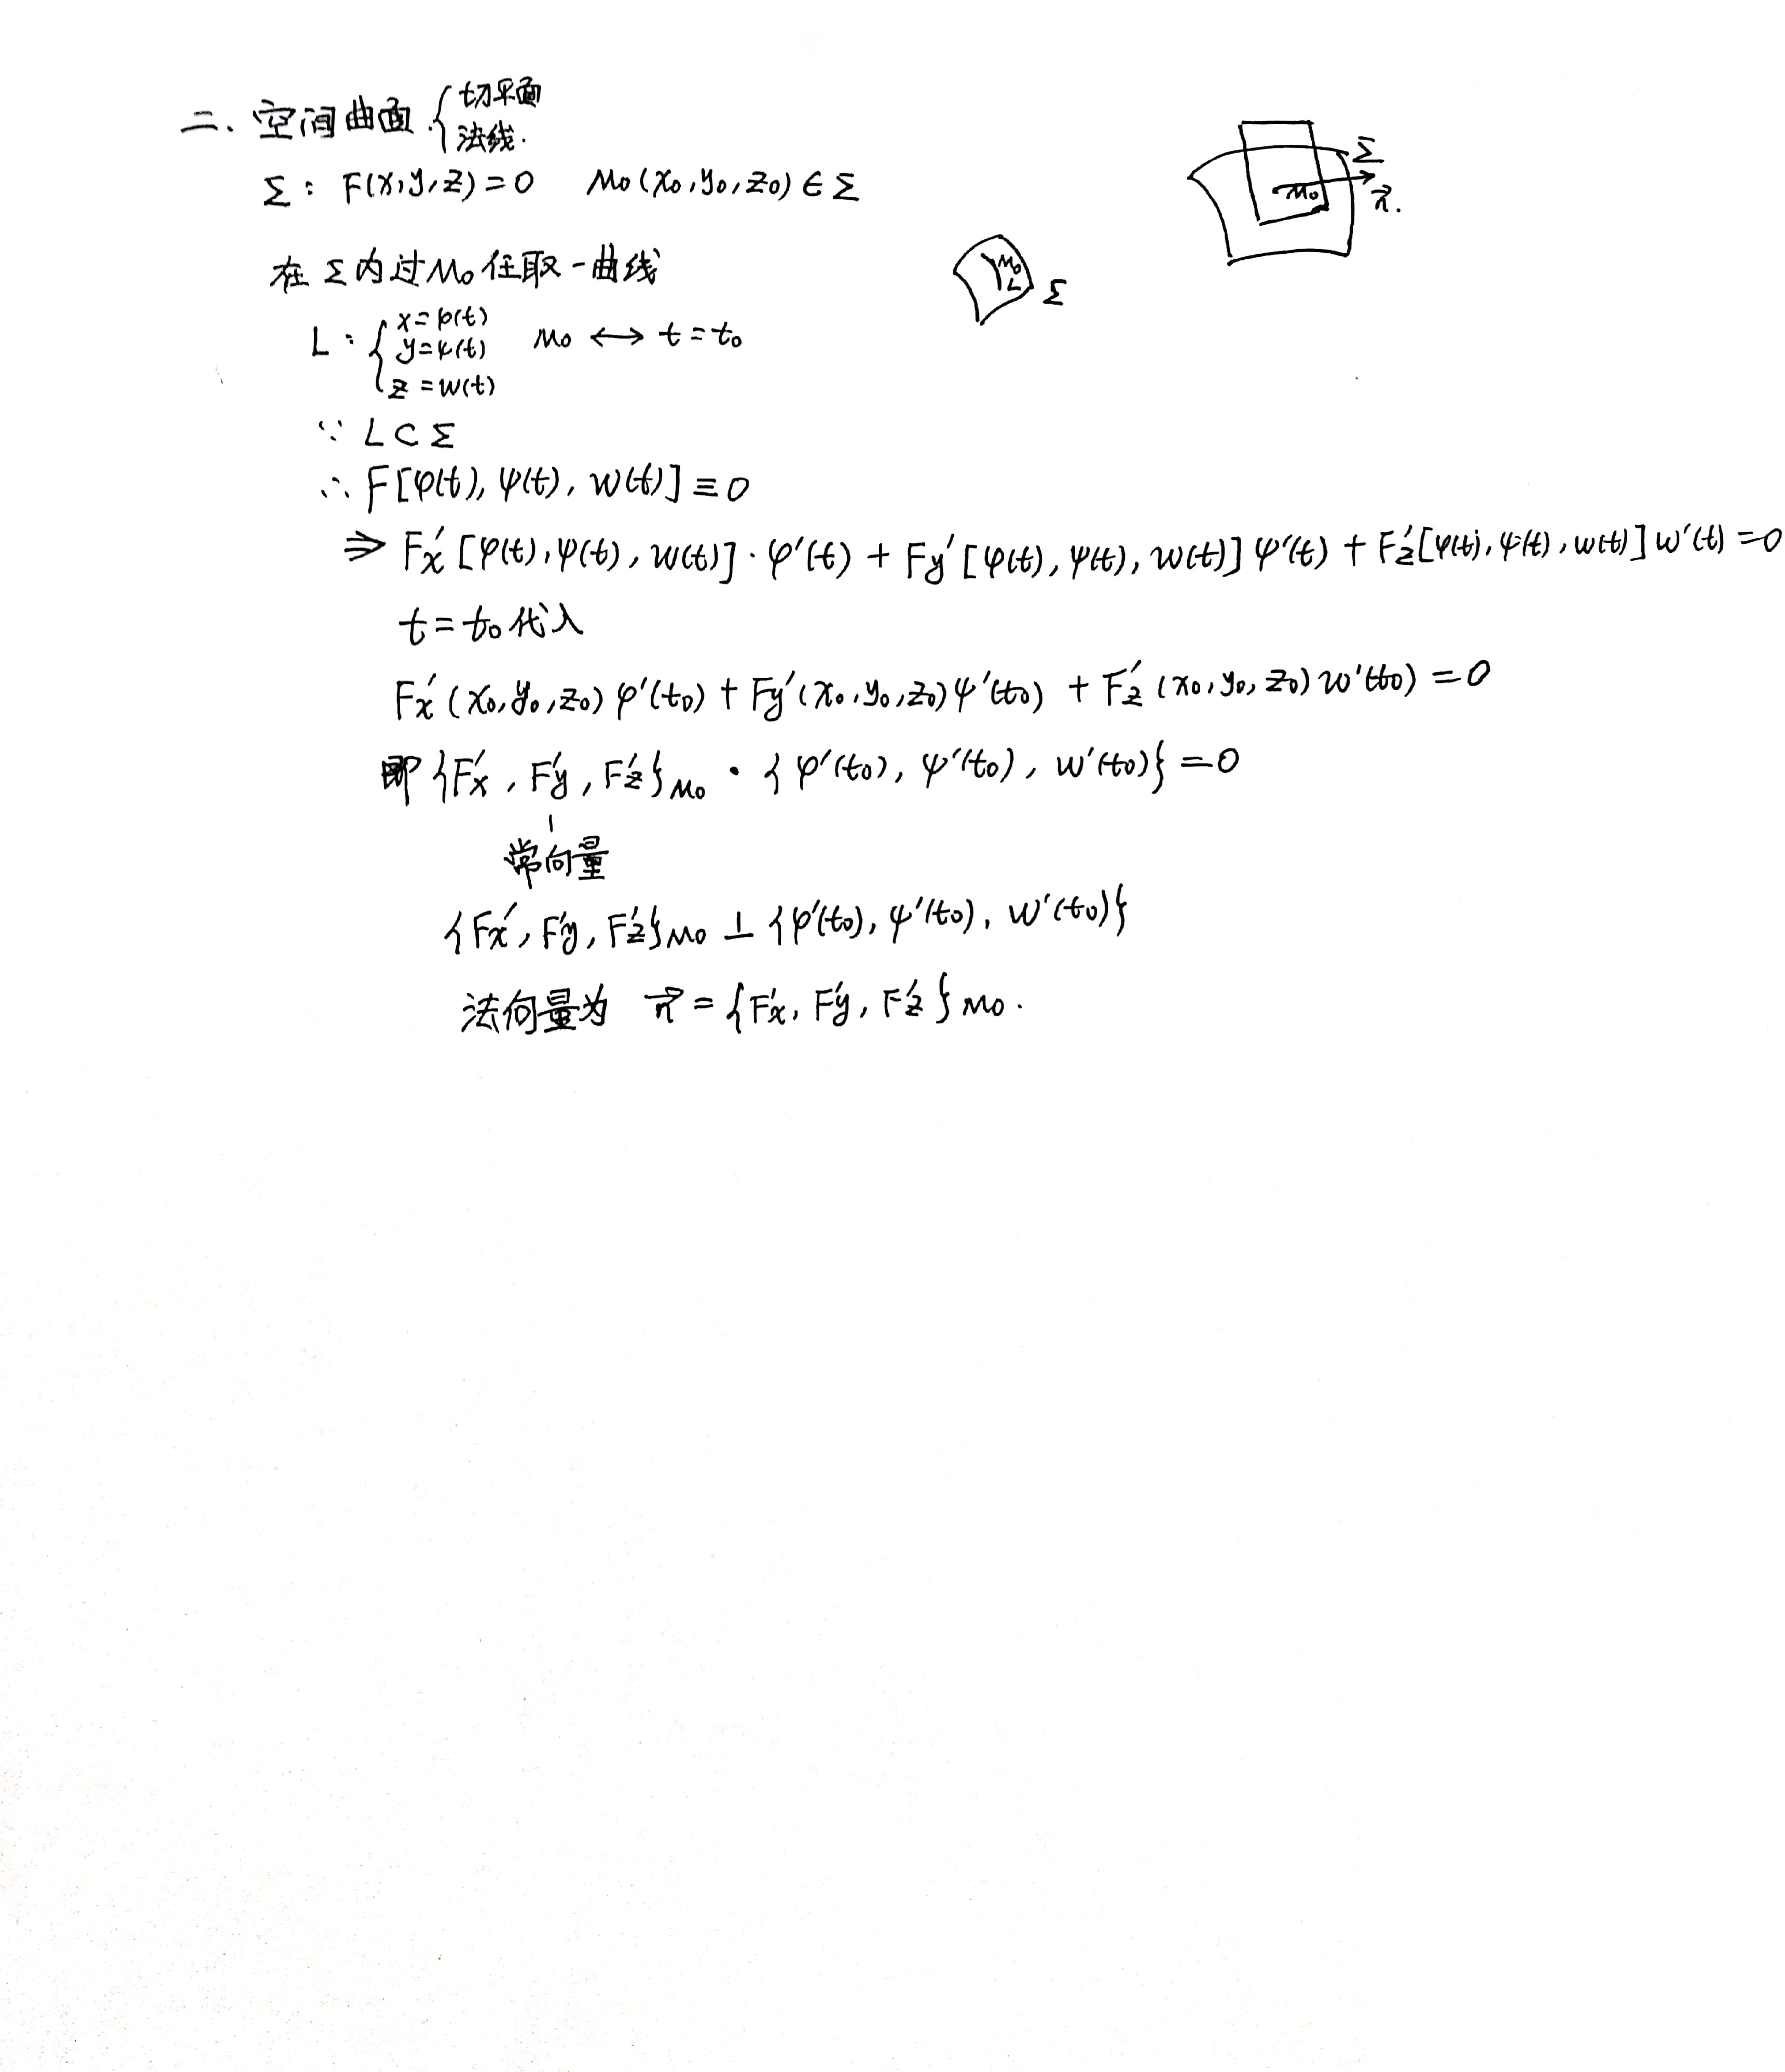 二、空间曲面 { 切平面
法线.
Σ: F(x,y,z)=0 M₀(x₀,y₀,z₀)∈Σ
Σ
M₀
n⃗.
在Σ内过M₀任取一曲线
M₀
L
Σ
L: { x=φ(t)
y=ψ(t) M₀ ↔ t=t₀
z=w(t)
∵ L⊂Σ
∴ F[φ(t), ψ(t), w(t)]≡0
⇒ Fx′[φ(t),ψ(t),w(t)]·φ′(t)+Fy′[φ(t),ψ(t),w(t)]ψ′(t)+Fz′[φ(t),ψ(t),w(t)]w′(t)=0
t=t₀代入
Fx′(x₀,y₀,z₀)φ′(t₀)+Fy′(x₀,y₀,z₀)ψ′(t₀)+Fz′(x₀,y₀,z₀)w′(t₀)=0
即{Fx′, Fy′, Fz′}M₀ · {φ′(t₀), ψ′(t₀), w′(t₀)}=0
常向量
{Fx′, Fy′, Fz′}M₀ ⊥ {φ′(t₀), ψ′(t₀), w′(t₀)}
法向量为 n⃗={Fx′, Fy′, Fz′}M₀.